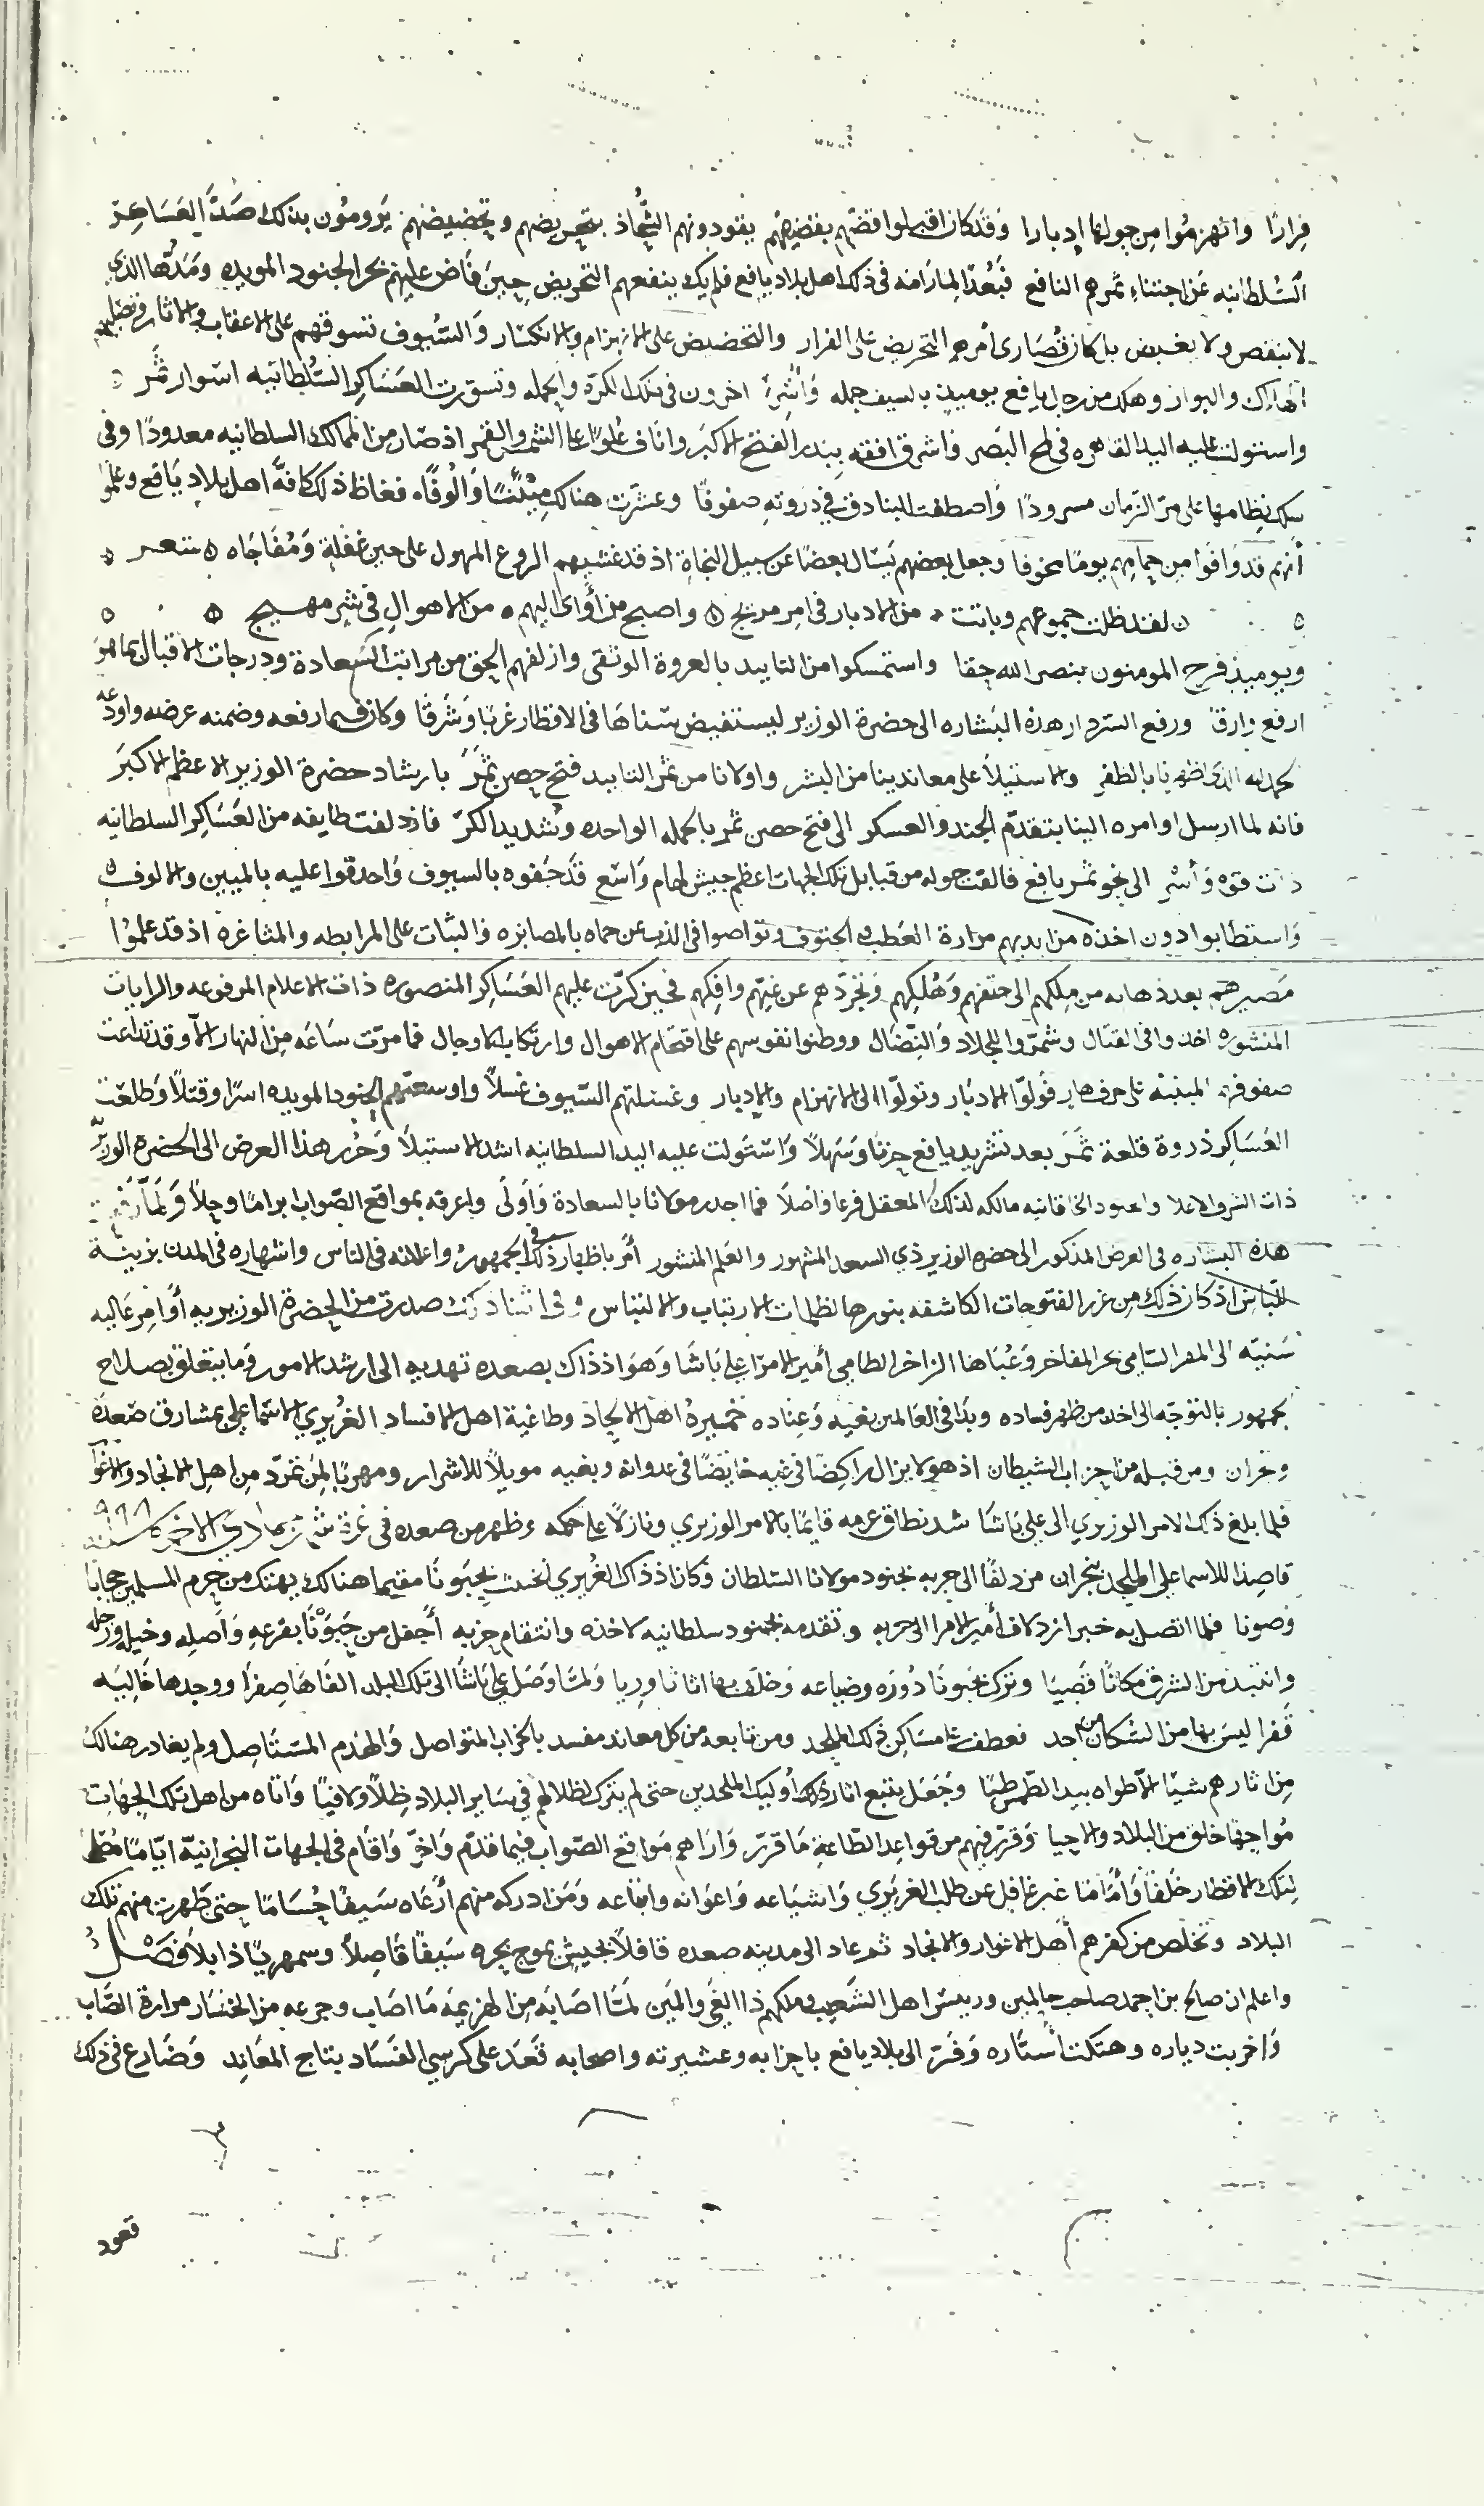 فِرارًا وانهزمُوا مِن جولها إدبارا وَقَدكان اقبلوا قضّهم بقضيضهم يقودونهم الشُّحاذ بتحريضهم وتحضيضهم يَرومُون بذلك صَدَّ العَسَاكِر
السُّلطانيه عَن اجتناءِ ثمرهم النافع فَبُعدًا لما رَامه فى ذلك اهل بلاد يافع فلم يك ينفعهم التحريض حِينَ فَاض عليهم بحر الجنود المويده ومَدّها الذى
لا ينقص ولا يغيض بل كان قُصَارى أمرهم التحريض على الفرار والتحضيض على الانهزام والانكسار وَالسُّيوف تسوقهم على الاعقاب والاثار
الهلاك والبوار وهلك من رجال يافع يوميذٍ بالسيف جمله وَأُسِرَ اخرون فى تلك الكرّه والحمله وتسوّرت العَسَاكِر السُّلطانيه اسوار ثمَر
واستولت عليه اليد القاهره فى لمح البَصر فاشرق افقه ببدر الفتح الاكبر واناف عُلوًّا على الشمس والقمر اذ صَار من الممالك السلطانيه معدودًا وفى
سلك نِظامها على مرّ الزمان مسرودًا وَاصطفت البنادق في ذروته صفوفًا وعشّرت هنالك مِئينًا وَأُلوفًا فغاظ ذلك كافّة اهل بلاد يَافع وعلموا
أنهم قد وَافَوا من حِمامِهم يومًا مخوفا وجعل بعضهم يَسْال بعضًا عن سبيل النجاةِ اذ قد غشيهم الروع المهول على حين غفلةٍ وَمُفاجَاه شعر
لقد ظلت جموعهم وباتت من الادبار فى امر مريج واصبح من أَوَى اليهم من الاهوالِ فى شر مهيج
ويوميذٍ فرح المومنون بنصر الله حقا واستمسكوا من التاييد بالعروة الوثقى وازلفهم الحق من مراتب السّعادة ودرجات الاقبال بما هو
ارفع وارقى ورفع السّردار هذه البَشاره الى حضرة الوزير ليستفيض سَناهَا فى الاقطار غربًا وشَرقًا وكان فيما رفعه وضمنه عرضه واودعه
نحمد الله الذى اظفرنا بالظفر والاستيلاءِ على معاندينا من البشر واولانا من ثمر التاييد فتح حصن ثمَر بارشاد حضرة الوزير الاعظم الاكبَر
فانه لما ارسل اوامره الينا بتقدّم الجند والعسكر الى فتح حصن ثمر بالحمله الواحده وشَديد الكرّ فازدلفت طايفه من العَسَاكِر السلطانيه
ذات قوه وَأَسْر الى نحو ثمر يافع فالفت حوله من قبايل تلك الجهات اعظم جيش لهام وَاسَع قد حَفوه بالسيوف وَاحدقوا عليه بالميين والالوف
وَاستطابوا دون اخذه من ايديهم مرارة العَطب والحتوف وتواصوا فى الذب عن حماه بالمصابره والثبات على المرابطه والمثاغرة اذ قد علموا
مَصيرهم بعد ذهابه من مِلكهم الى حتفهم وَهُلكِهم وَتجردّهم عن غيّهم وافكِهم فحين كرّت عليهم العَسَاكِر المنصوره ذات الاعلام المرفوعه والرايات
المنشوره اخذوا فى القتال وشمّروا للجلاد وَالنِّضَال ووطنوا نفوسهم على اقتحام الاهوال وارتكاب الاوجال فما مرّت سَاعَه مِن النهار الّا وقد تداعَت
صفوفهم المبنيّه على جرف هارٍ فولّوا الادبار وتولّوا الى الانهزام والادبار وغسَلتهم السّيوف غسلًا واوسعتهم الجنود المويده اسرًا وقتلًا وَطلعَت
العَسَاكِر ذروة قلعة ثمَرَ بعد تشريد يافع حزنًا وسَهلًا وَاسْتولت عليه اليد السلطانيه اشد الاستيلا وَحُرر هذا العرض الى الحضرة الوزيريّه
ذات الشرف الاعلا والجنود الخاقانيه مالكه لذلك المعقل فرعًا وَاصلًا فما اجدر مولانا بالسعادة وَأولَى واعرفه بمواقع الصّواب ابرامًا وحِلًّا وَلَمّا رُفعت
هذه البشاره فى العرض المذكور الى حضرة الوزير ذي السعد المشهور والعَلم المنشور أمَر باظهار ذلك فى الجمهور واعلانه فى الناس واشهاره فى المدن بزينة
اللباس اذ كان ذلك مِن غرر الفتوحات الكاشفه بنورها لظلمات الارتياب والالتباس وفى اثنا ذلك صدرت من الحضرة الوزيريه أَوَامِر عَاليه
سَنيّه الى المقر السّامي بحر المفاخر وَعُبَابها الزاخر الطامي أمير الامرَا علي باشَا وَهوَ اذ ذاك بصعده تهديه الى ارشد الامور وَما يتعلق بصلاح
الجمهور بالتوجّه الى اخذ من ظهر فساده وبدَا فى العَالمين بغيه وَعِناده خميرة اهل الالحاد وطاغية اهل الافساد الغُريري الاسماعيلي بمشارق صَعدة
ونجران ومن قبله من احزاب الشيطان اذ هو لا يزال راكضًا فى غيه خايضًا فى عدوانه وبغيه مويلًا للاشرار ومهربًا لمن تمرّد مِن اهل الانجاد والاغوار
فلما بلغ ذلك الامر الوزيري الى علي بَاشَا شد نطاق عزمه قايمًا بالامر الوزيري ونازلًا على حكمه وظهر من صعده فى غرة شهر جمادى الاخرة سنة ٩٩٨
قاصِدًا للاسماعيلي الملحد بنجران مزدلفًا الى حربه بجنود مولانا السّلطان وَكان اذ ذاك الغُريري الخبيث بحَبَونَا مقيما هنالك يهتك من حرم المسلمين حجابًا
وَصونا فلما اتصل به خبر ازدلاف أمير الامرا الى حربه وتقدمه بجنود سلطانيه لاخذه وانتقام حزبه أجفل من حَبَوْنَا بفرعه وَأَصلِه وخيله ورجله
وانتبذ من الشرق مكانًا قَصِيَا وترك بحَبونَا دُورَه وضياعه وَخلّف بها اثاثًا وريا وَلمّا وَصَل علي بَاشَا الى تلك البلد الفَاهَا صِفرًا ووجدها خَاليَه
قفرا ليسَ بها من السّكان من احد فعطف على مسَاكِن ذلك الملحد ومن تابعه من كل معاند مفسد بالخراب المتواصل وَالهَدم المسْتاصِل ولم يغادر هنالك
مِن اثارهم شيًا الّا طواه بيد الطّمس طيًا وَجَعَل يتتبع اثار أوليك الملحدين حتى لم يترك لظلالهم في سَاير البلاد ظِلًا ولا فيًا وَاتاه من اهل تلك الجِهَات
مُواجهًا خلق من البلاد والاحيا وَقرّر فيهم من قواعِد الطّاعةِ مَا قرّر وَارَاهم مَواقع الصّواب فيما قدّم وَاخرّ وَاقَام فى الجهات النجرانيّة ايّامًا
لتلك الاقطار خَلفًا وَأمَامًا غير غَافِل عن طلب الغريري وَاشيَاعه وَاعوَانه واتباعه وَمَن ادركه منهم أرْعَاه سَيفًا حُسَامًا حتى طَهرت منهم تلك
البلاد وتخلّص من كفرهم أَهْل الاغوار والانجاد ثم عاد الى مدينه صعده قافلًا بجيش يموج بحره سَيفًا قَاصِلًا وسمهريًا ذابلًا فَصْلُ
واعلم ان صالح بن احمد صاحب حالمين وريس اهل الشعيب وملكهم ذا البغي والمَين لَمّا اصَابَه مِن الهزيمَة مَا اصَاب وجرعه من الخسَار مرارة الصَّاب
وَاخربت دياره وهتكت أستاره وَفَرّ الى بلاد يافع باحزابه وعشيرته واصحابه قَعَد على كرسي الفَسَاد بتاج المعَاند وَضَارع فى ذلك
قعود